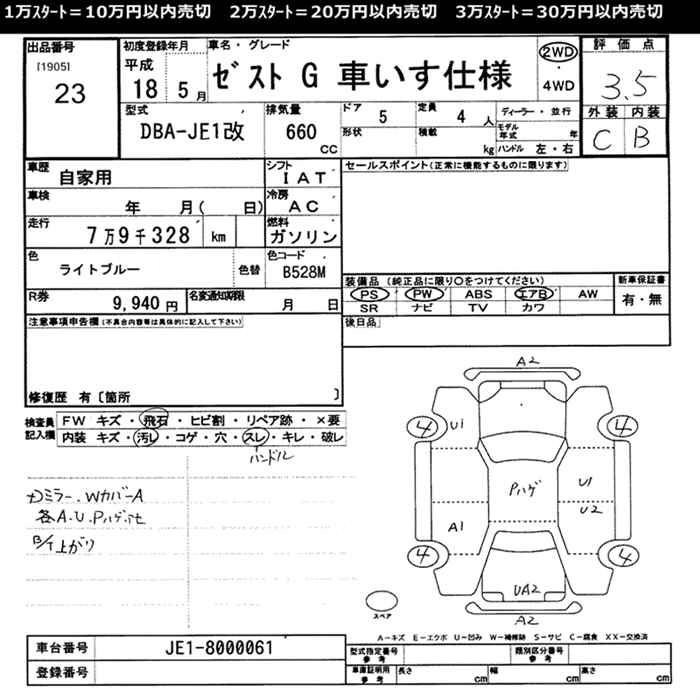 1万ｽﾀｰﾄ＝10万円以内売切　2万ｽﾀｰﾄ＝20万円以内売切　3万ｽﾀｰﾄ＝30万円以内売切
出品番号
[1905]
23
初度登録年月
平成
18 5月
車名・グレード
ｾﾞｽﾄ G 車いす仕様
2WD
・
4WD
評価点
3.5
外装 内装
C B
型式
DBA-JE1改
排気量
660
CC
ドア 5
形状
定員 4 人
積載 kg
ディーラー・並行
モデル年式 年
ハンドル 左・右
車歴
自家用
シフト
IAT
セールスポイント(正常に機能するものに限ります)
車検
年 月( 日)
冷房
AC
走行
7万9千328 km
燃料
ガソリン
色
ライトブルー
色替
色コード
B528M
装備品 (純正品に限り○をつけてください)
PS PW ABS エアB AW
SR ナビ TV カワ
新車保証書
有・無
R券
9,940 円
名変通知期限
月 日
後日品
注意事項申告欄(不具合内容等は具体的に記入して下さい)
修復歴 有〔箇所 〕
検査員記入欄
FW キズ・飛石・ヒビ割・リペア跡・×要
内装 キズ・汚レ・コゲ・穴・スレ・キレ・破レ
ハンドル
Dミラー、WカバーA
各A.U.Pハゲ、他
下上がり
A2
4 4
U1
Pハゲ
U1
U2
A1
4 4
UA2
A2
スペア
A－キズ E－エクボ U－凹み W－補修跡 S－サビ C－腐食 XX－交換済
車台番号
JE1-8000061
登録番号
型式指定番号
参考
類別区分番号
参考
車庫証明用
参考
長さ cm
幅 cm
高さ cm